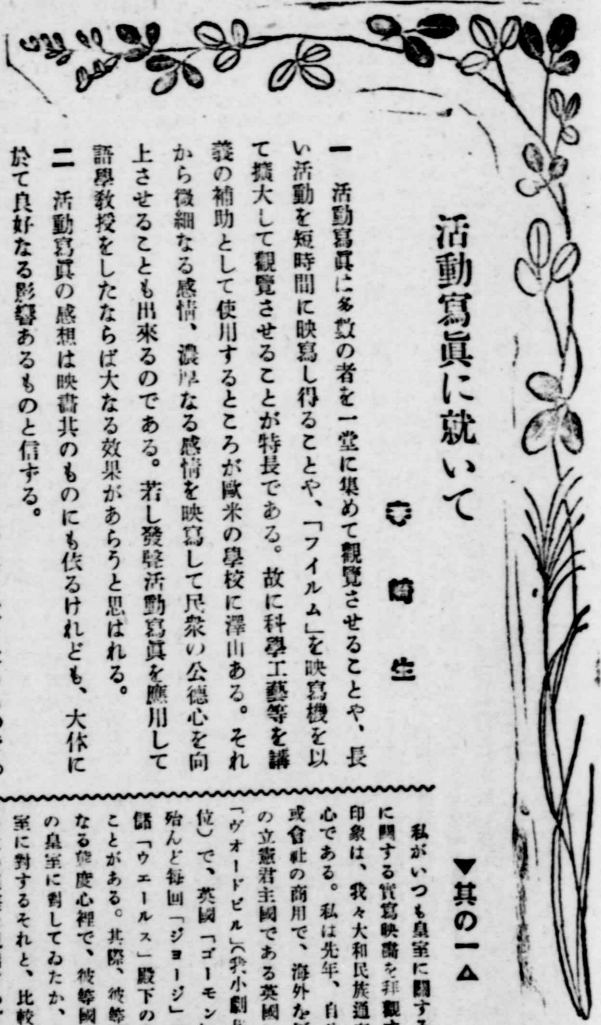 活動寫眞に就いて
生
一　活動寫眞は多數の者を一堂に集めて觀覽させることや、長
い活動を短時間に映寫し得ることや、「フイルム」を映寫機を以
て擴大して觀覽させることが特長である。故に科學工藝等を講
義の補助として使用するところが歐米の學校に澤山ある。それ
から微細なる感情、濃厚なる感情を映寫して民衆の公德心を向
上させることも出來るのである。若し發聲活動寫眞を應用して
語學敎授をしたならば大なる效果があらうと思はれる。
二　活動寫眞の感想は映畫其のものにも依るけれども、大体に
於て良好なる影響あるものと信する。
▼其の一△
私がいつも皇室に關する
に關する實寫映畫を拜觀
印象は、我々大和民族通
心である。私は先年、自
或會社の商用で、海外を
の立憲君主國である英國
「ヴオードビル」(我小劇
位)で、英國「ゴーモン
殆んど每回「ジヨージ」
儲「ウエールス」殿下の
ことがある。其際、彼等
なる態度心裡で、彼等國
の皇室に對してゐたか、
室に對するそれと、比較